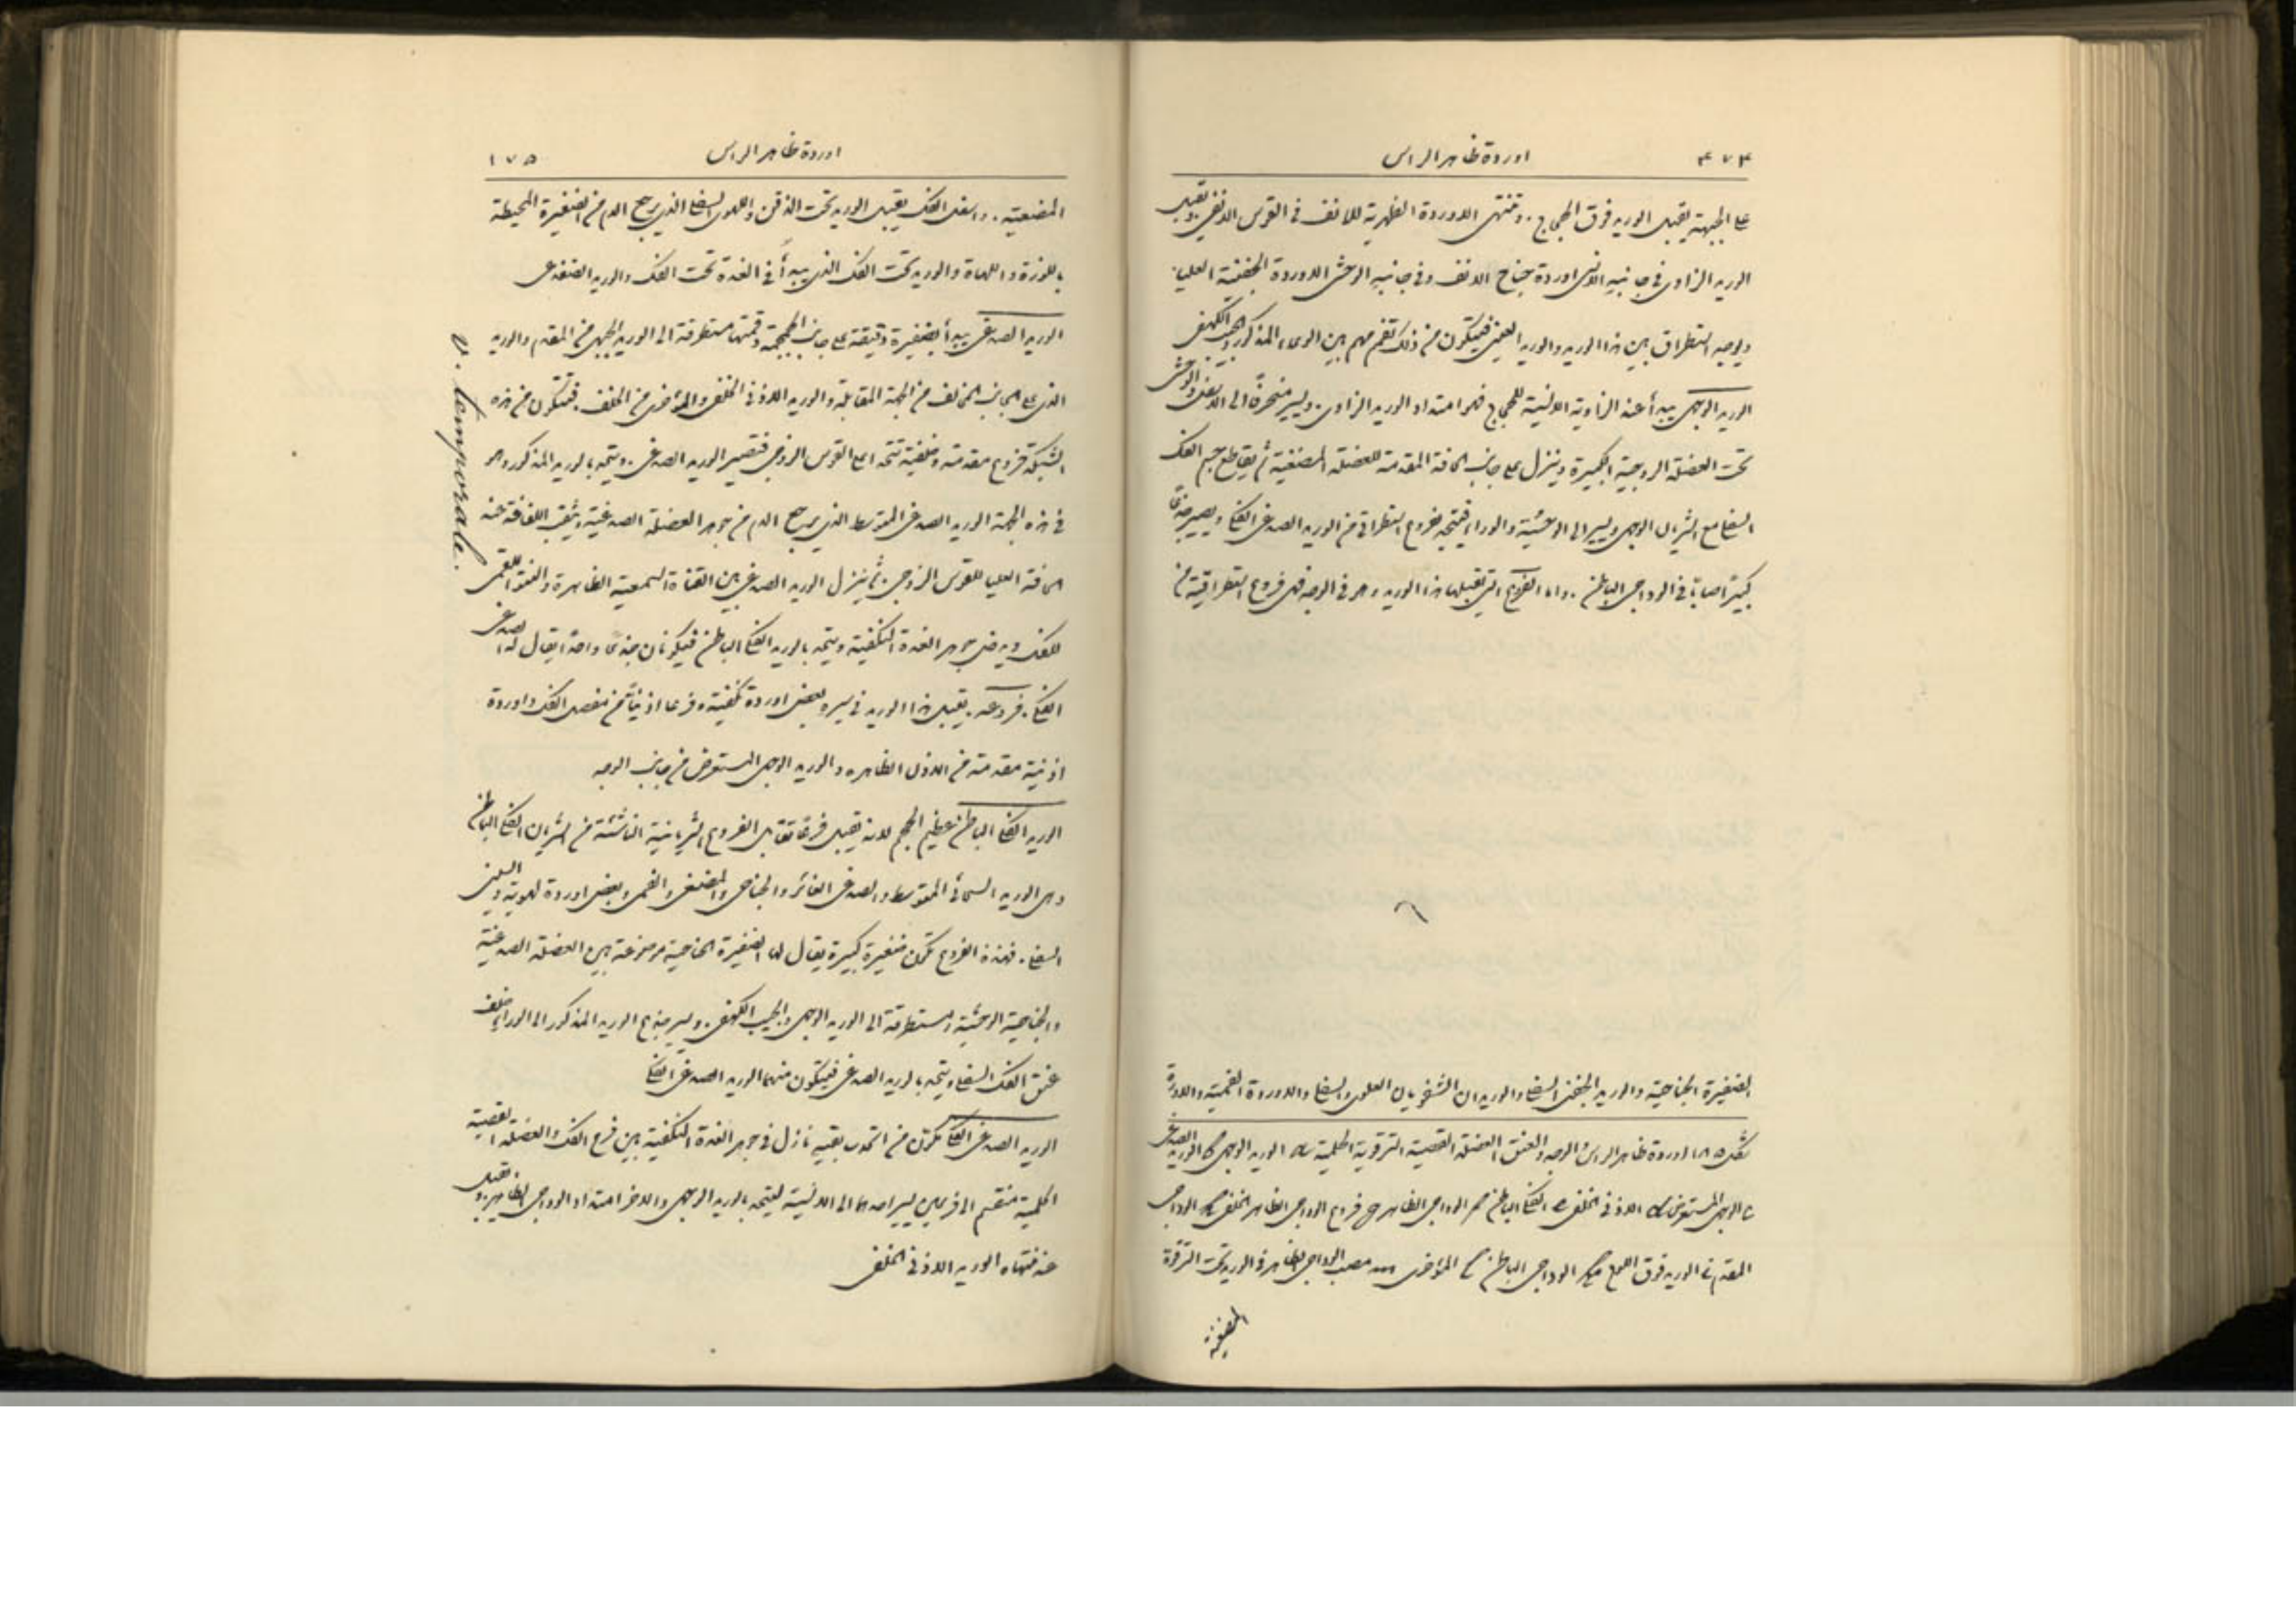 ٤٧٤
اوردة ظاهر الراس
على الجبهة يقبل الوريد فوق الحجاج . وتنتهى الاوردة الظهرية للانف فى القوس الانفى ويقبل
الوريد الزاوى فى جانبه الانسى اوردة جناح الانف وفى جانبه الوحشى الاوردة الجفنية العليا .
ويوجد استطراق بين هذا الوريد والوريد العينى فيتكون من ذلك تفمم مهم بين الوعاء المذكور والجيب الكهفى
الوريد الوجهى يبدأ عند الزاوية الانسية للحجاج فهو امتداد الوريد الزاوى . ويسير منحرفًا الى الاسفل والوحشى
تحت العضلة الزوجية الكبيرة وينزل على جانب الحافة المقدمة للعضلة المضغية ثم يقاطع جسم الفك
السفلى مع الشريان الوجهى ويسير الى الوحشية والوراء فيتحد بفروع استطراقى من الوريد الصدغى الفكى ويصير جذعًا
كبيرًا صابًّا فى الوداجى الباطن . واما الفروع التى تقبلها هذا الوريد وهو فى الوجه فهى فروع استطراقية من
الضفيرة الجناحية والوريد الجفنى السفلى والوريدان الشفويان العلوى والسفلى والاوردة الفمية والاوردة
شكل ١٨٥ اوردة ظاهر الراس والوجه والعنق العضلة القصية الترقوية الحلمية الوريد الوجهى الوريد الصدغى
الوجهى المستعرض الاذنى الخلفى الفكى الباطن الوداجى الظاهر فروع الوداجى الظاهر الخلفى الوداجى
المقدم الوريد فوق اللوح الوداجى الباطن المؤخرى مصب الوداجى الظاهر فى الوريد تحت الترقوة
المضغية
١٧٥
اوردة ظاهر الراس
المضغية . واسفل الفك يقبل الوريد تحت الذقن واللهوى السفلى الذى يرجع الدم من الضفيرة المحيطة
باللوزة واللهاة والوريد تحت الفك الذى يبدأ فى الغدة تحت الفك والوريد الضفدعى
الوريد الصدغى يبدأ بضفيرة دقيقة على جانب الجمجمة وقمتها مستطرقة الى الوريد الجبهى من المقدم والوريد
الذى على الجانب المخالف من الجهة المقابلة والوريد الاذنى الخلفى والمؤخرى من الخلف . فتتكون من هذه
الشبكة فروع مقدمة وخلفية تتحد اعلى القوس الزوجى فتصير الوريد الصدغى . ويتحد بالوريد المذكور وهو
فى هذه الجهة الوريد الصدغى المتوسط الذى يرجع الدم من جوهر العضلة الصدغية ويثقب اللفافة عند
الحافة العليا للقوس الزوجى . ثم ينزل الوريد الصدغى بين القناة السمعية الظاهرة والنتوء اللقمى
للفك ويدخل جوهر الغدة النكفية ويتحد بالوريد الفكى الباطن فيكونان جذعًا واحدًا يقال له الصدغى
الفكى . فروعه . يقبل هذا الوريد فى سيره بعض اوردة نكفية وفرعا اذنيًا من مفصل الفك واوردة
اذنية مقدمة من الاذن الظاهره والوريد الوجهى المستعرض من جانب الوجه
الوريد الفكى الباطن عظيم الحجم لانه يقبل فروعًا تقابل الفروع الشريانية الناشئة من الشريان الفكى الباطن
وهى الوريد السحائى المتوسط والصدغى الغائر والجناحى والمضغى والفمى وبعض اوردة لهوية والسنى
السفلى . فهذه الفروع تكون ضفيرة كبيرة يقال لها الضفيرة الجناحية موضوعة بين العضلة الصدغية
والجناحية الوحشية ومستطرقة الى الوريد الوجهى والجيب الكهفى . ويسير جذع الوريد المذكور الى الوراء خلف
عنق الفك السفلى ويتحد بالوريد الصدغى فيتكون منهما الوريد الصدغى الفكى
الوريد الصدغى الفكى تكون من اتحاد سابقيه نازل فى جوهر الغدة النكفية بين فرع الفك والعضلة القصية
الحلمية منقسم الى فرعين يسير احدهما الى الانسية ليتحد بالوريد الوجهى والاخر امتداد الوداجى الظاهر ويقبل
عند منتهاه الوريد الاذنى الخلفى
v. temporale.